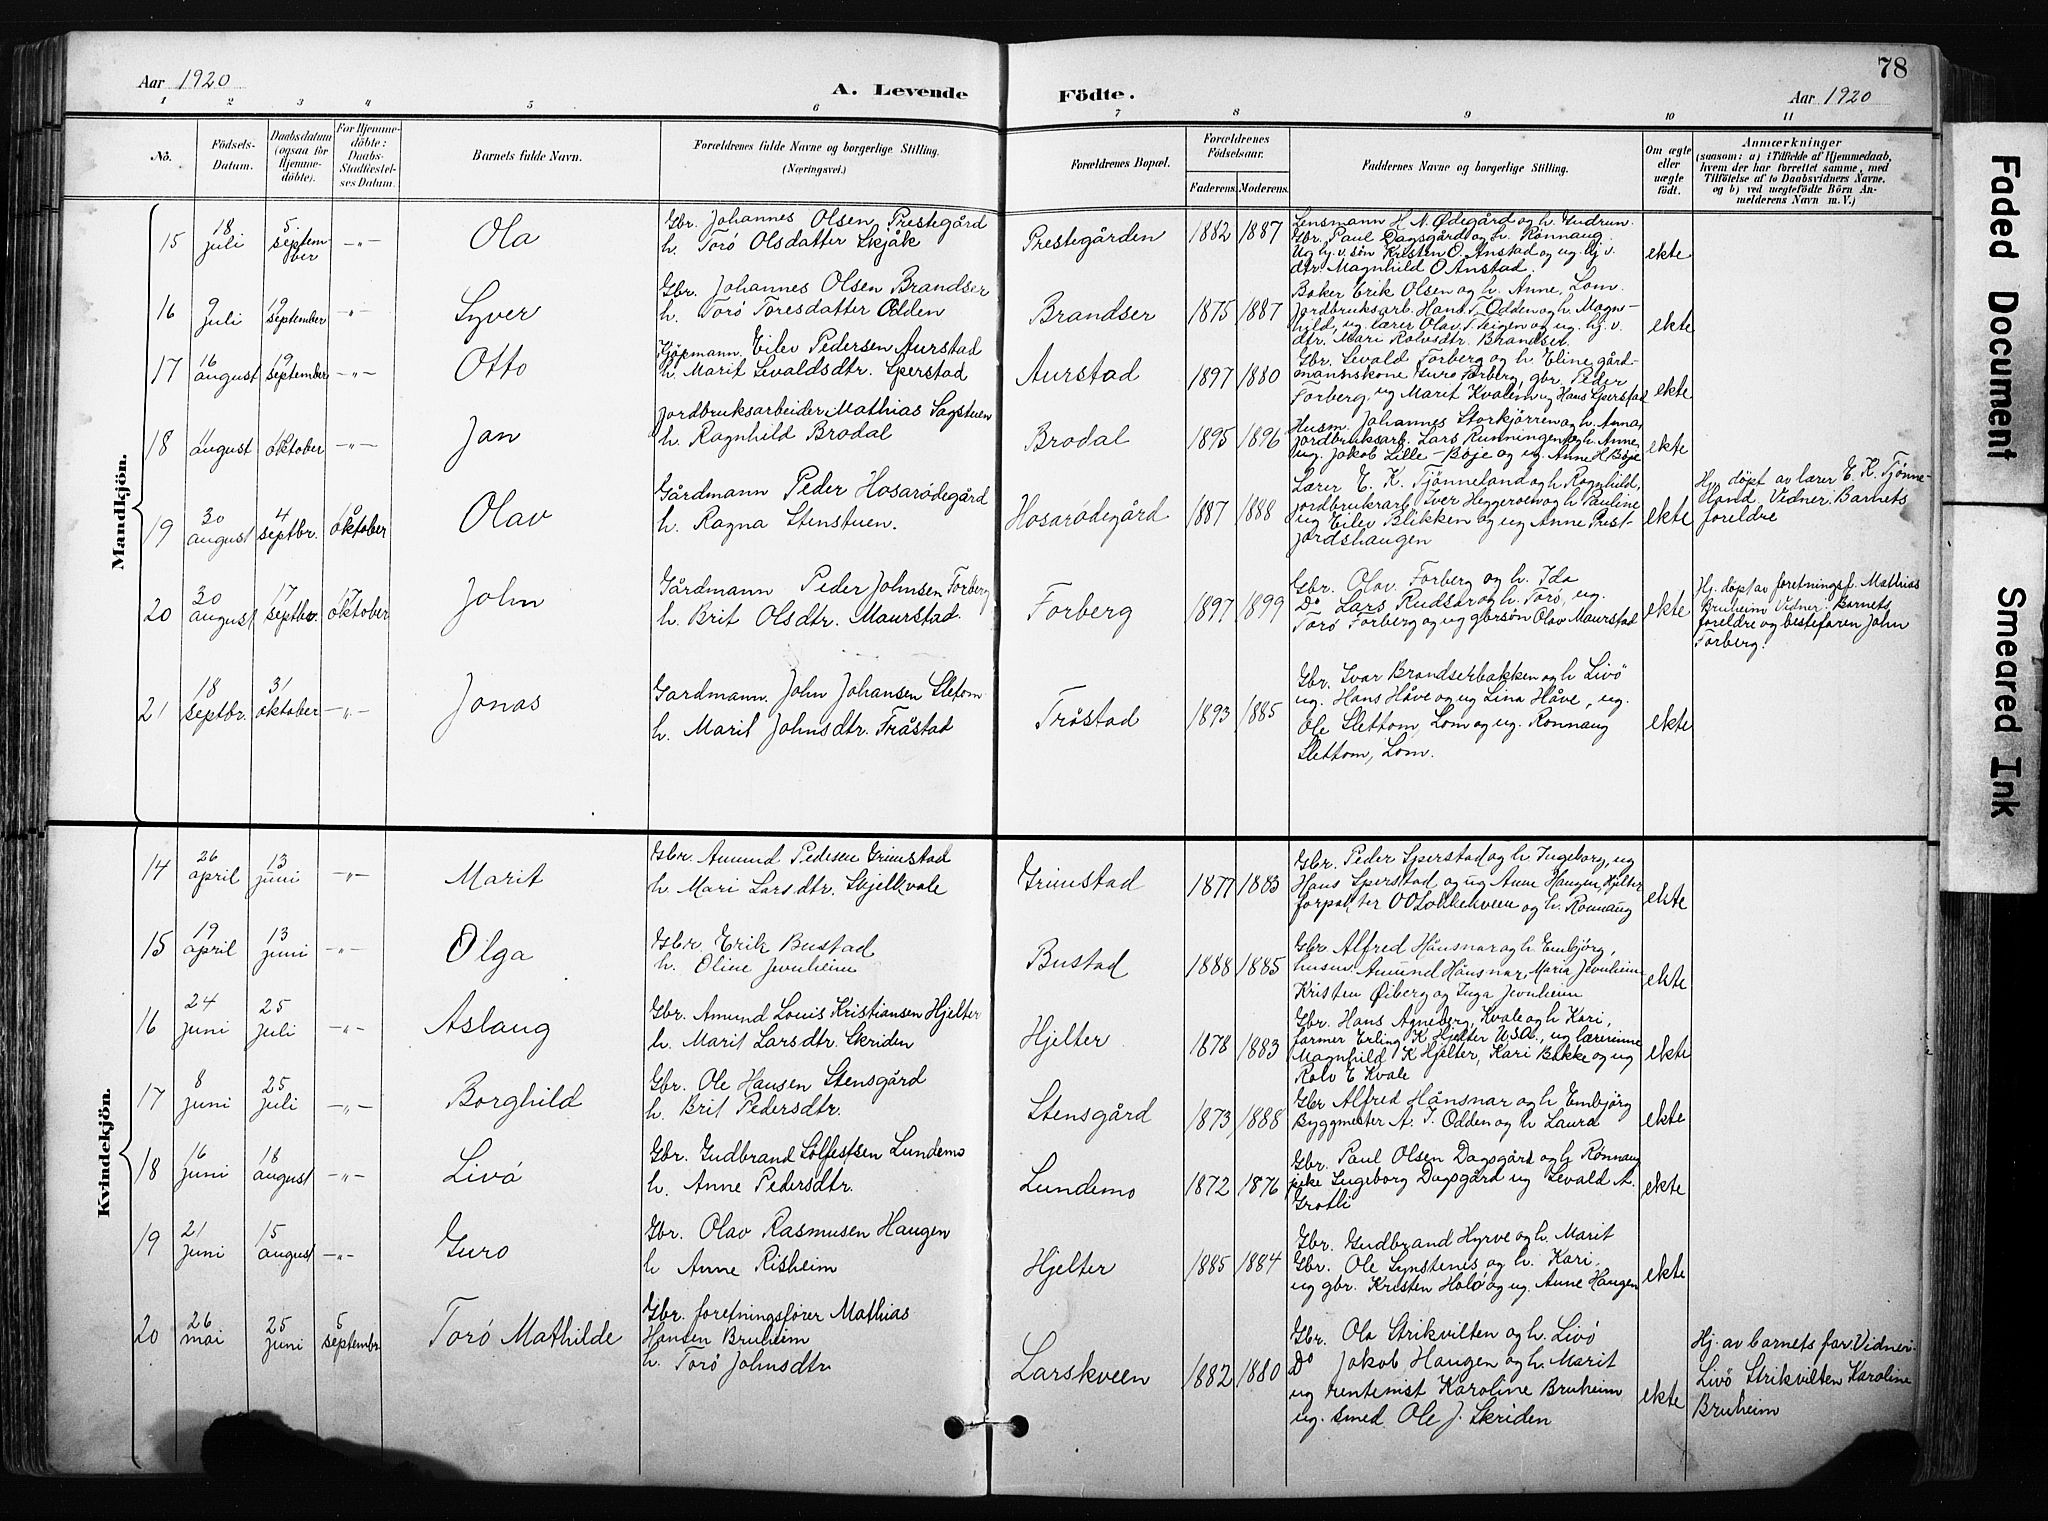 78
Aar 1920
A. Levende
Födte.
Aar 1920
1 2 3 4 5 6 7 8 9 10 11
No.
Födsels-
Datum.
Daabsdatum
(ogsaa för
Hjemme-
döbte).
For Hjemme-
döbte:
Daabs-
Stadfæstel-
ses Datum.
Barnets fulde Navn.
Forældrenes fulde Navne og borgerlige Stilling.
(Næringsvei.)
Forældrenes Bopæl.
Forældrenes
Födselsaar.
Faderens. Moderens.
Faddernes Navne og borgerlige Stilling.
Om ægte
eller
uægte
födt.
Anmærkninger
(saasom: a) i Tilfælde af Hjemmedaab,
hvem der har forrettet samme, med
Tilföielse af to Daabsvidners Navne,
og b) ved uægtefödte Börn An-
melderens Navn m. V.)
Mandkjön.
15
18
juli
5.
septem
ber
-"-
Ola
Gbr. Johannes Olsen Prestegård
h. Torö Olsdatter Skjåk
Prestegården
1882 1887
Lensmann H. N. Ødegård og h. Gudrun.
Gbr. Paul Dagsgård og h. Rönnaug
Ug hj. v. sön Kristen O. Anstad og ug. hj. v.
dtr. Magnhild O Anstad.
ekte
16
9
juli
19
september
-"-
Syver
Gbr. Johannes Olsen Brandser
h. Torö Toresdatter Odden
Brandser
1875 1887
Baker Erik Olsen og h. Anne, Lom.
Jordbruksarb. Hans T. Odden og h. Magn-
hild, ug. lærer Olav T. Teigen og ug. hj. v.
dtr. Mari Rolvsdtr. Brandser.
ekte
17
16
august
19
september
-"-
Otto
Kjöpmann. Eilev Pedersen Aurstad
h. Marit Sevaldsdtr. Sperstad
Aurstad
1897 1880
Gbr. Sevald Forberg og h Eline gård-
mannskone Guro Forberg, gbr. Peder
Forberg, ug Marit Kvalem ug Hans Sperstad
ekte
18
11
august
10
oktober
-"-
Jan
Jordbruksarbeider Mathias Sagstuen
h. Ragnhild Brodal
Brodal
1895 1896
Husm. Johannes Storkjörren og h. Anna,
jordbruksarb. Lars Runningen og h. Anne,
ug. Jakob Lille-Böje og ug. Anne H Böje
ekte
19
30
august
4
septbr.
10
oktober
Olav
Gårdmann Peder Hosarødegård
h. Ragna Stenstuen.
Hosarødegård
1887 1888
Lærer E. K. Tjönneland og h. Ragnhild,
jordbrukarb. Iver Heggeroen og h Pauline
ug Eilev Blikken og ug Anne Prest-
jordshaugen
ekte
Hj. döpt av lærer E. K. Tjönne-
land. Vidner: Barnets
foreldre
20
30
august
17
septbr.
17
oktober
John
Gårdmann Peder Johnsen Forberg
h. Brit Olsdtr. Maurstad.
Forberg
1897 1899
Gbr. Olav Forberg og h. Ida
Do Lars Rudsar og h. Torö, ug.
Torö Forberg og ug gbrsön Olav Maurstad
ekte
Hj. döpt av foretningsf. Mathias
Bruheim Vidner: Barnets
foreldre og bestefaren John
Forberg.
21
18
septbr.
31
oktober
-"-
Jonas
Gardmann. John Johansen Sletom
h. Marit Johnsdtr. Tråstad
Tråstad
1893 1885
Gbr. Ivar Brandserbakken og h Livö
ug. Hans Håve og ug Lina Håve, ug.
Ole Slettom, Lom og ug. Rönnaug
Slettom, Lom.
ekte
Kvindekjön.
14
26
april
13
juni
-"-
Marit
Gbr. Amund Pedersen Grimstad
h. Mari Larsdtr. Skjelkvale
Grimstad
1877 1883
Gbr. Peder Sperstad og h Ingeborg, ug
Hans Sperstad og ug Anne Haugen, Hjelter
forpakter O O Lökkehveen og h. Rönnaug
ekte
15
19
april
13
juni
-"-
Olga
Gbr. Erik Bustad
h. Oline Jevnheim
Bustad
1888 1885
Gbr Alfred Hånsnar og h. Embjörg,
husm. Amund Hånsnar, Maria Jevnheim
Kristen Øiberg og Inga Jevnheim
ekte
16
24
juni
25
juli
-"-
Aslaug
Gbr. Amund Louis Kristiansen Hjelter
h. Marit Larsdtr. Skriden
Hjelter
1878 1883
Gbr. Hans Agneberg, Kvale og h Kari,
farmer Erling K Hjelter U.S.A., ug lærerinne
Magnhild K Hjelter, Kari Bakke og ug
Rolv E Kvale
ekte
17
8
juni
25
juli
-"-
Borghild
Gbr. Ole Hansen Stensgård
h. Brit Pedersdtr.
Stensgård
1873 1888
Gbr Alfred Hånsnar og h Embjörg
Byggmester A. I. Odden og h Laura
ekte
18
16
juni
18
august
-"-
Livö
Gbr. Gudbrand Sölfestsen Lundemo
h. Anne Pedersdtr.
Lundemo
1872 1876
Gbr. Paul Olsen Dagsgård og h Rönnaug
pike Ingeborg Dagsgård ug Sevald A.
Grotli
ekte
19
21
juni
15
august
-"-
Guro
Gbr. Olav Rasmusen Haugen
h Anne Risheim
Hjelter
1885 1884
Gbr. Gudbrand Hyrve og h. Marit
Gbr. Ole Synstenis og h. Kari
ug gbr. Kristen Holö og ug. Anne Haugen
ekte
20
26
mai
25
juni
5
september
Torö Mathilde
Gbr. foretningsförer Mathias
Hansen Bruheim
h. Torö Johnsdtr
Larskveen
1882 1880
Gbr. Ola Strikvilten og h. Livö
Do Jakob Haugen og h. Marit
ug rentenist Karoline Bruheim
ug. smed Ole J. Skriden
ekte
Hj. av barnets far. Vidner:
Livö Strikvilten Karoline
Bruheim
Faded Document
Smeared Ink